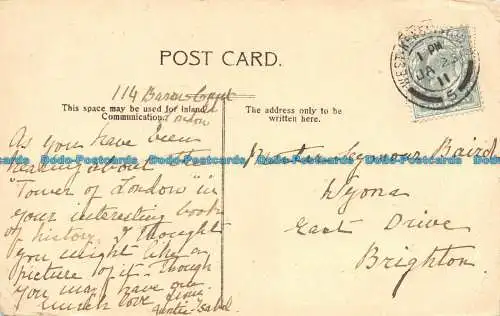 POST CARD.
114 Baron Court
This space may be used for inland
Communication.
The address only to be
written here.
As you have been
reading about
"Tower of London" in
your interesting book
of history, I thought
you might like a
picture of it - though
you may have one
much love from
Auntie Isabel
Master Seymour Baird
East Drive
Brighton.
1-PM
JA 23
11
Dodo-Postcards Dodo-Postcards Dodo-Postcards Dodo-Postcards Dodo-Postcards